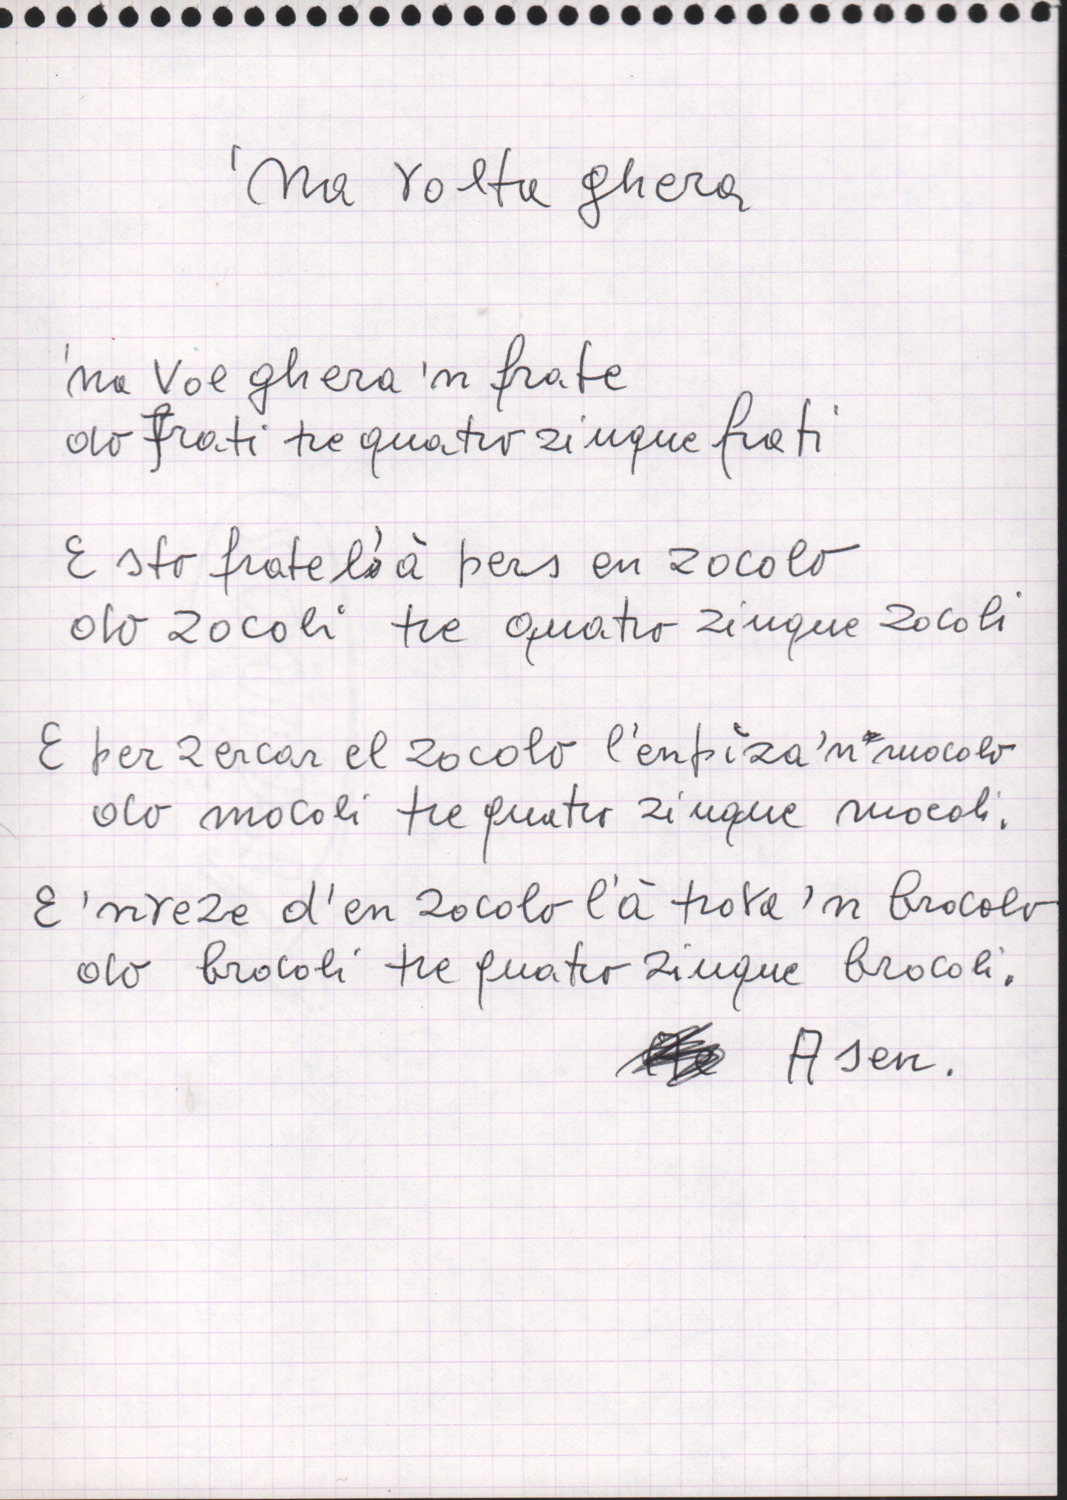 'Na volta ghera
'na voe ghera 'n frate
do frati tre quatro zinque frati
E sto frate l'à pers en zocolo
do zocoli tre quatro zinque zocoli
E per zercar el zocolo l'enpiza 'n mocolo
do mocoli tre quatro zinque mocoli.
E 'nveze d'en zocolo l'à trova 'n brocolo
do brocoli tre quatro zinque brocoli.
Asen.